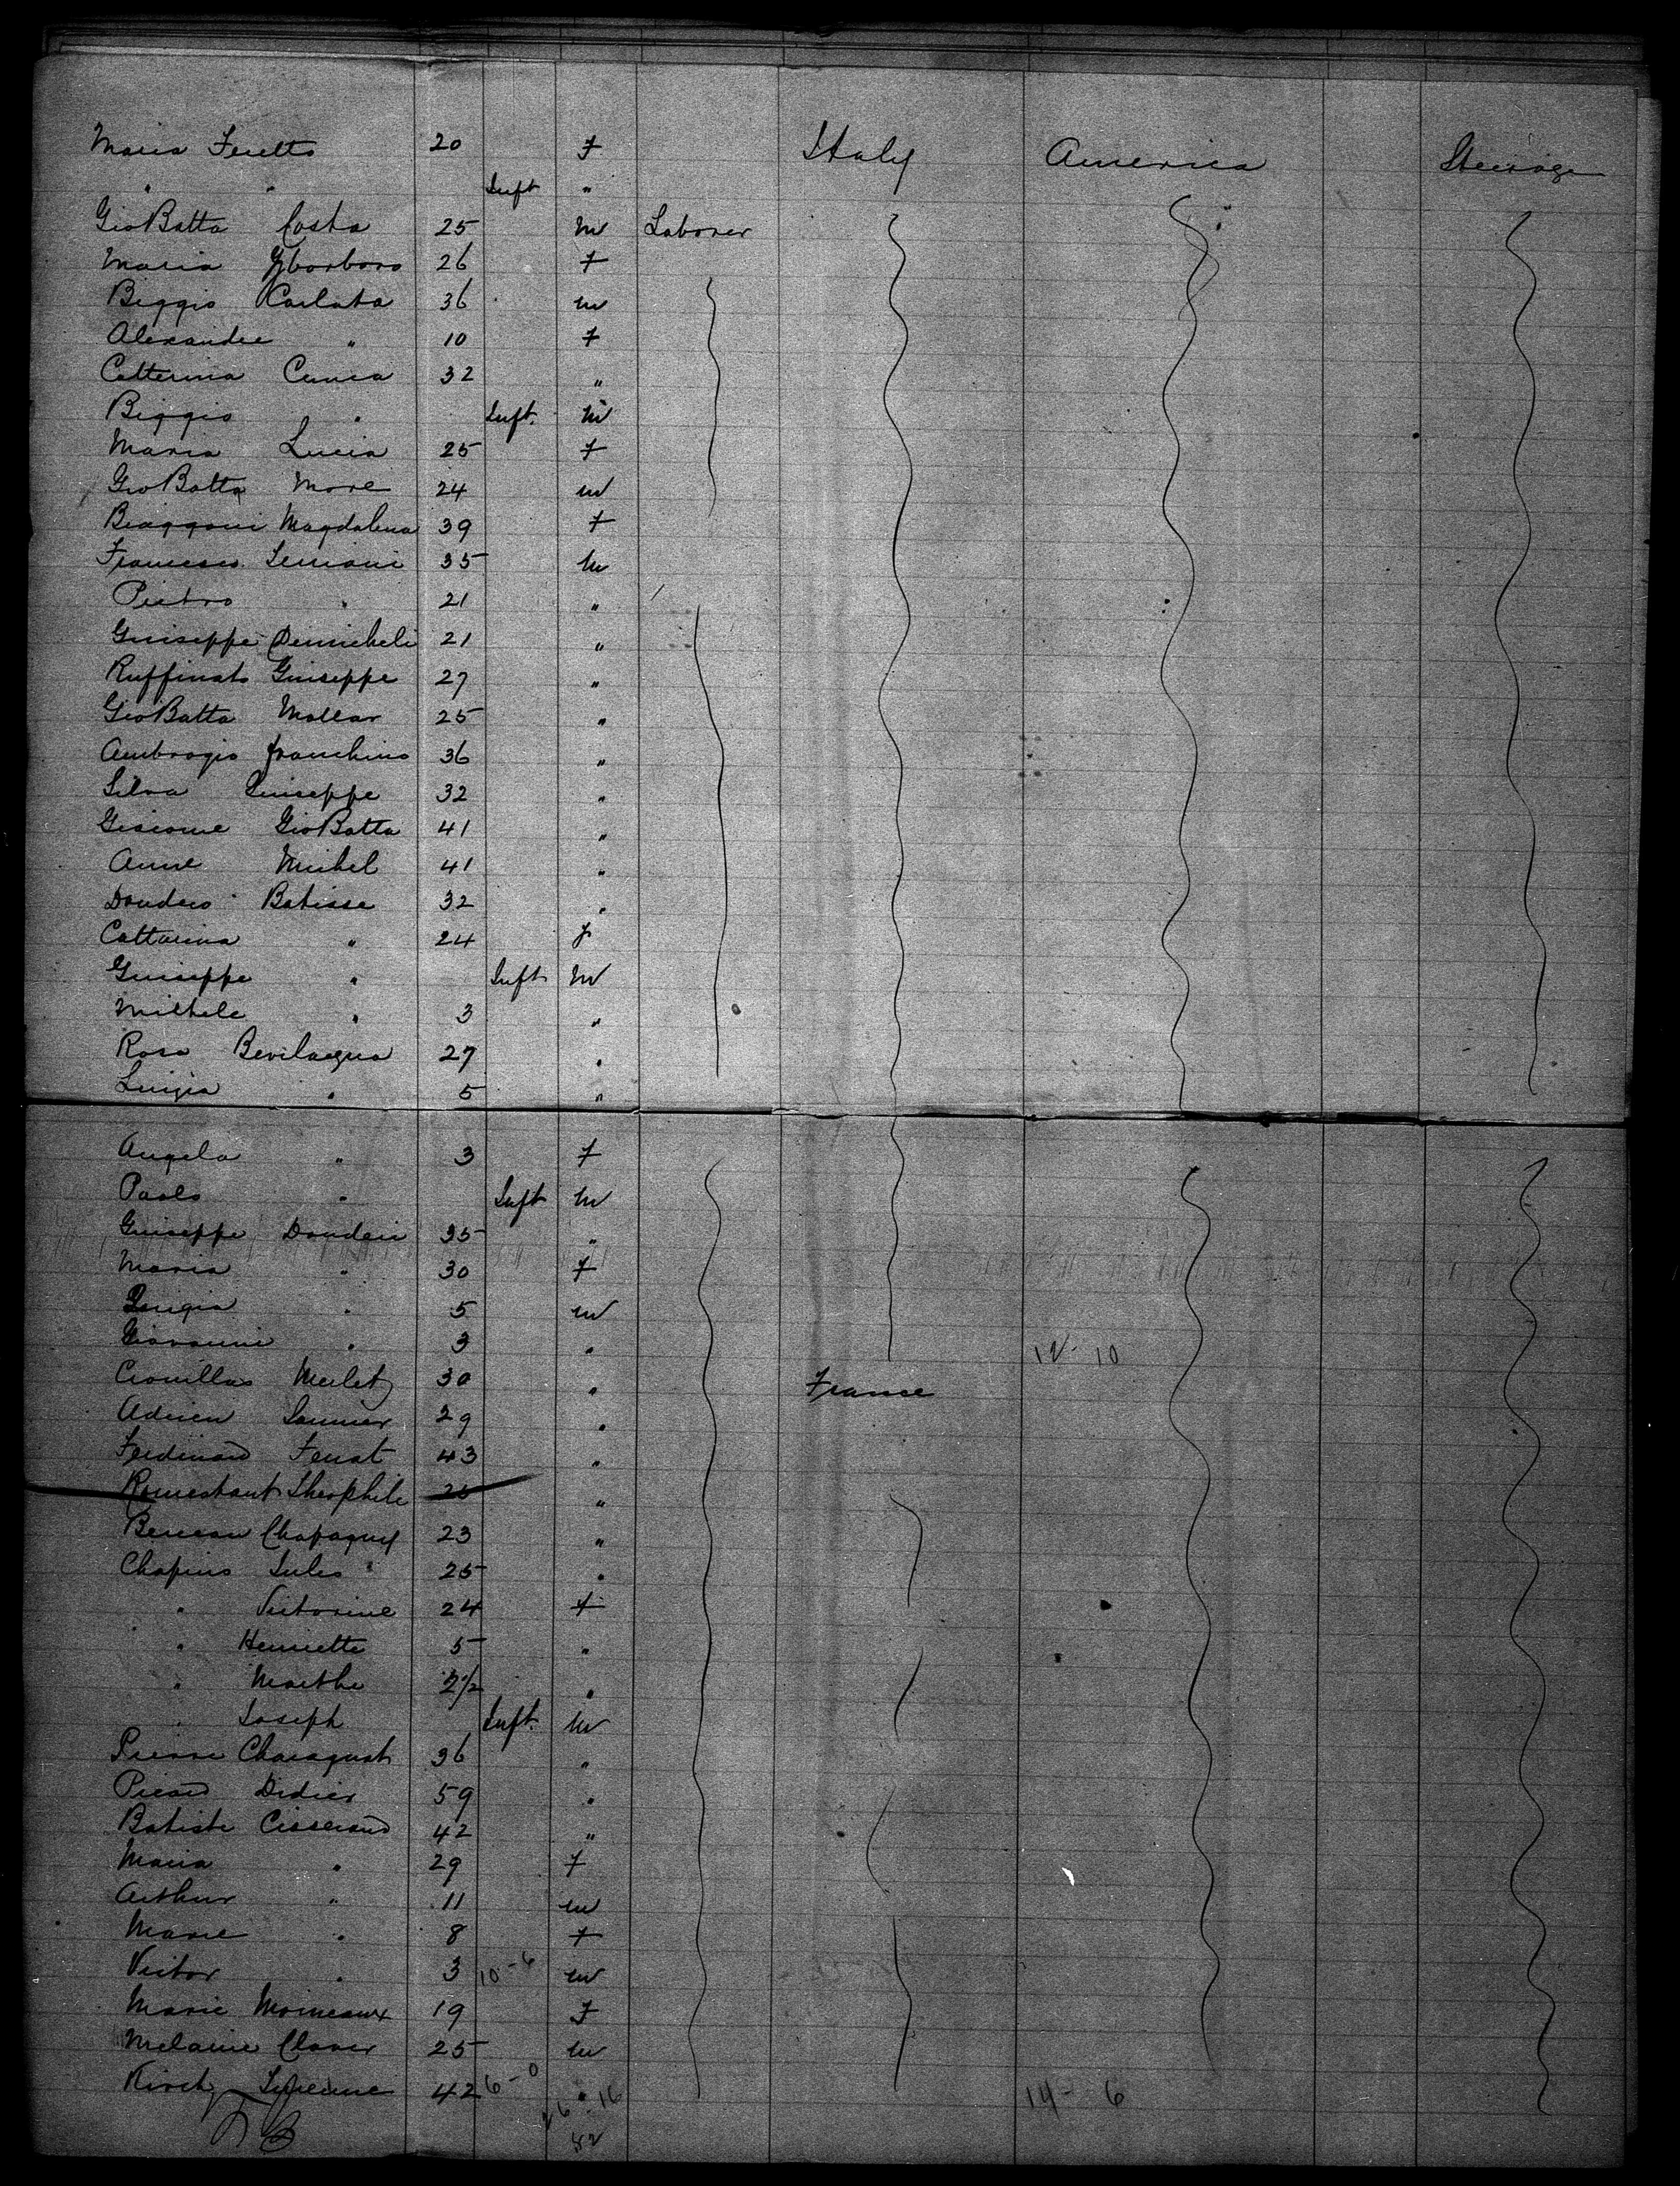 Maria Feretto 20 F Italy America Steerage
" " Inft "
GioBatta Costa 25 M Laborer
Maria 26 F
Biggio Carlata 36 M
Alexandre " 10 F
Catterina Cunea 32 "
Biggio " Inft. M
Maria Lucia 25 F
GioBatta More 24 M
Biaggoni Magdalena 39 F
Francesco 35 M
Pietro " 21 "
Guiseppe Demicheli 21 "
Ruffinato Guiseppe 27 "
GioBatta Mollar 25 "
Ambrogio Franchino 36 "
Silva Guiseppe 32 "
Giacome GioBatta 41 "
Anne Michel 41 "
Dondero Batisse 32 "
Cattarina " 24 F
Guiseppe " Inft M
Michele " 3 "
Rosa Bevilacqua 27 "
Luigia " 5 "
Angela " 3 F
Paolo " Inft M
Guiseppe Donderi 35 "
Maria " 30 F
Luigia " 5 M
Giovanni " 3 " 12-10
Merlet 30 " France
Adrien Saunier 29 "
Ferdinand Ferrat 43 "
Romestant Theophile 26 "
23 "
Chapius Jules 25 "
" Victorine 24 F
" Henriette 5 "
" Marthe 2½ "
" Joseph Inft. M
Pierre 36 "
Picard Didier 59 "
Batiste Cisserand 42 "
Maria " 29 F
Arthur " 11 M
Marie " 8 F
Victor " 3 10-6 M
Marie Moineaux 19 F
Melanie Claver 25 M
Kirch 42 6-0 " 14-6
26-16
52